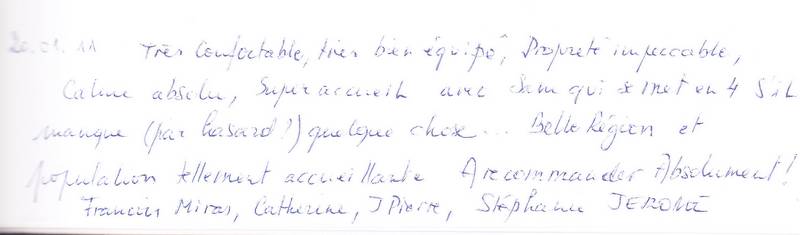 20.01.11 Très Confortable, très bien équipé, Propreté impeccable,
Calme absolu, Super accueil avec Sam qui se met en 4 S'il
manque (par hasard!) quelque chose... Belle Région et
population tellement accueillante A recommander Absolument!
Francis Miras, Catherine, JPierre, Stéphanie JEROME